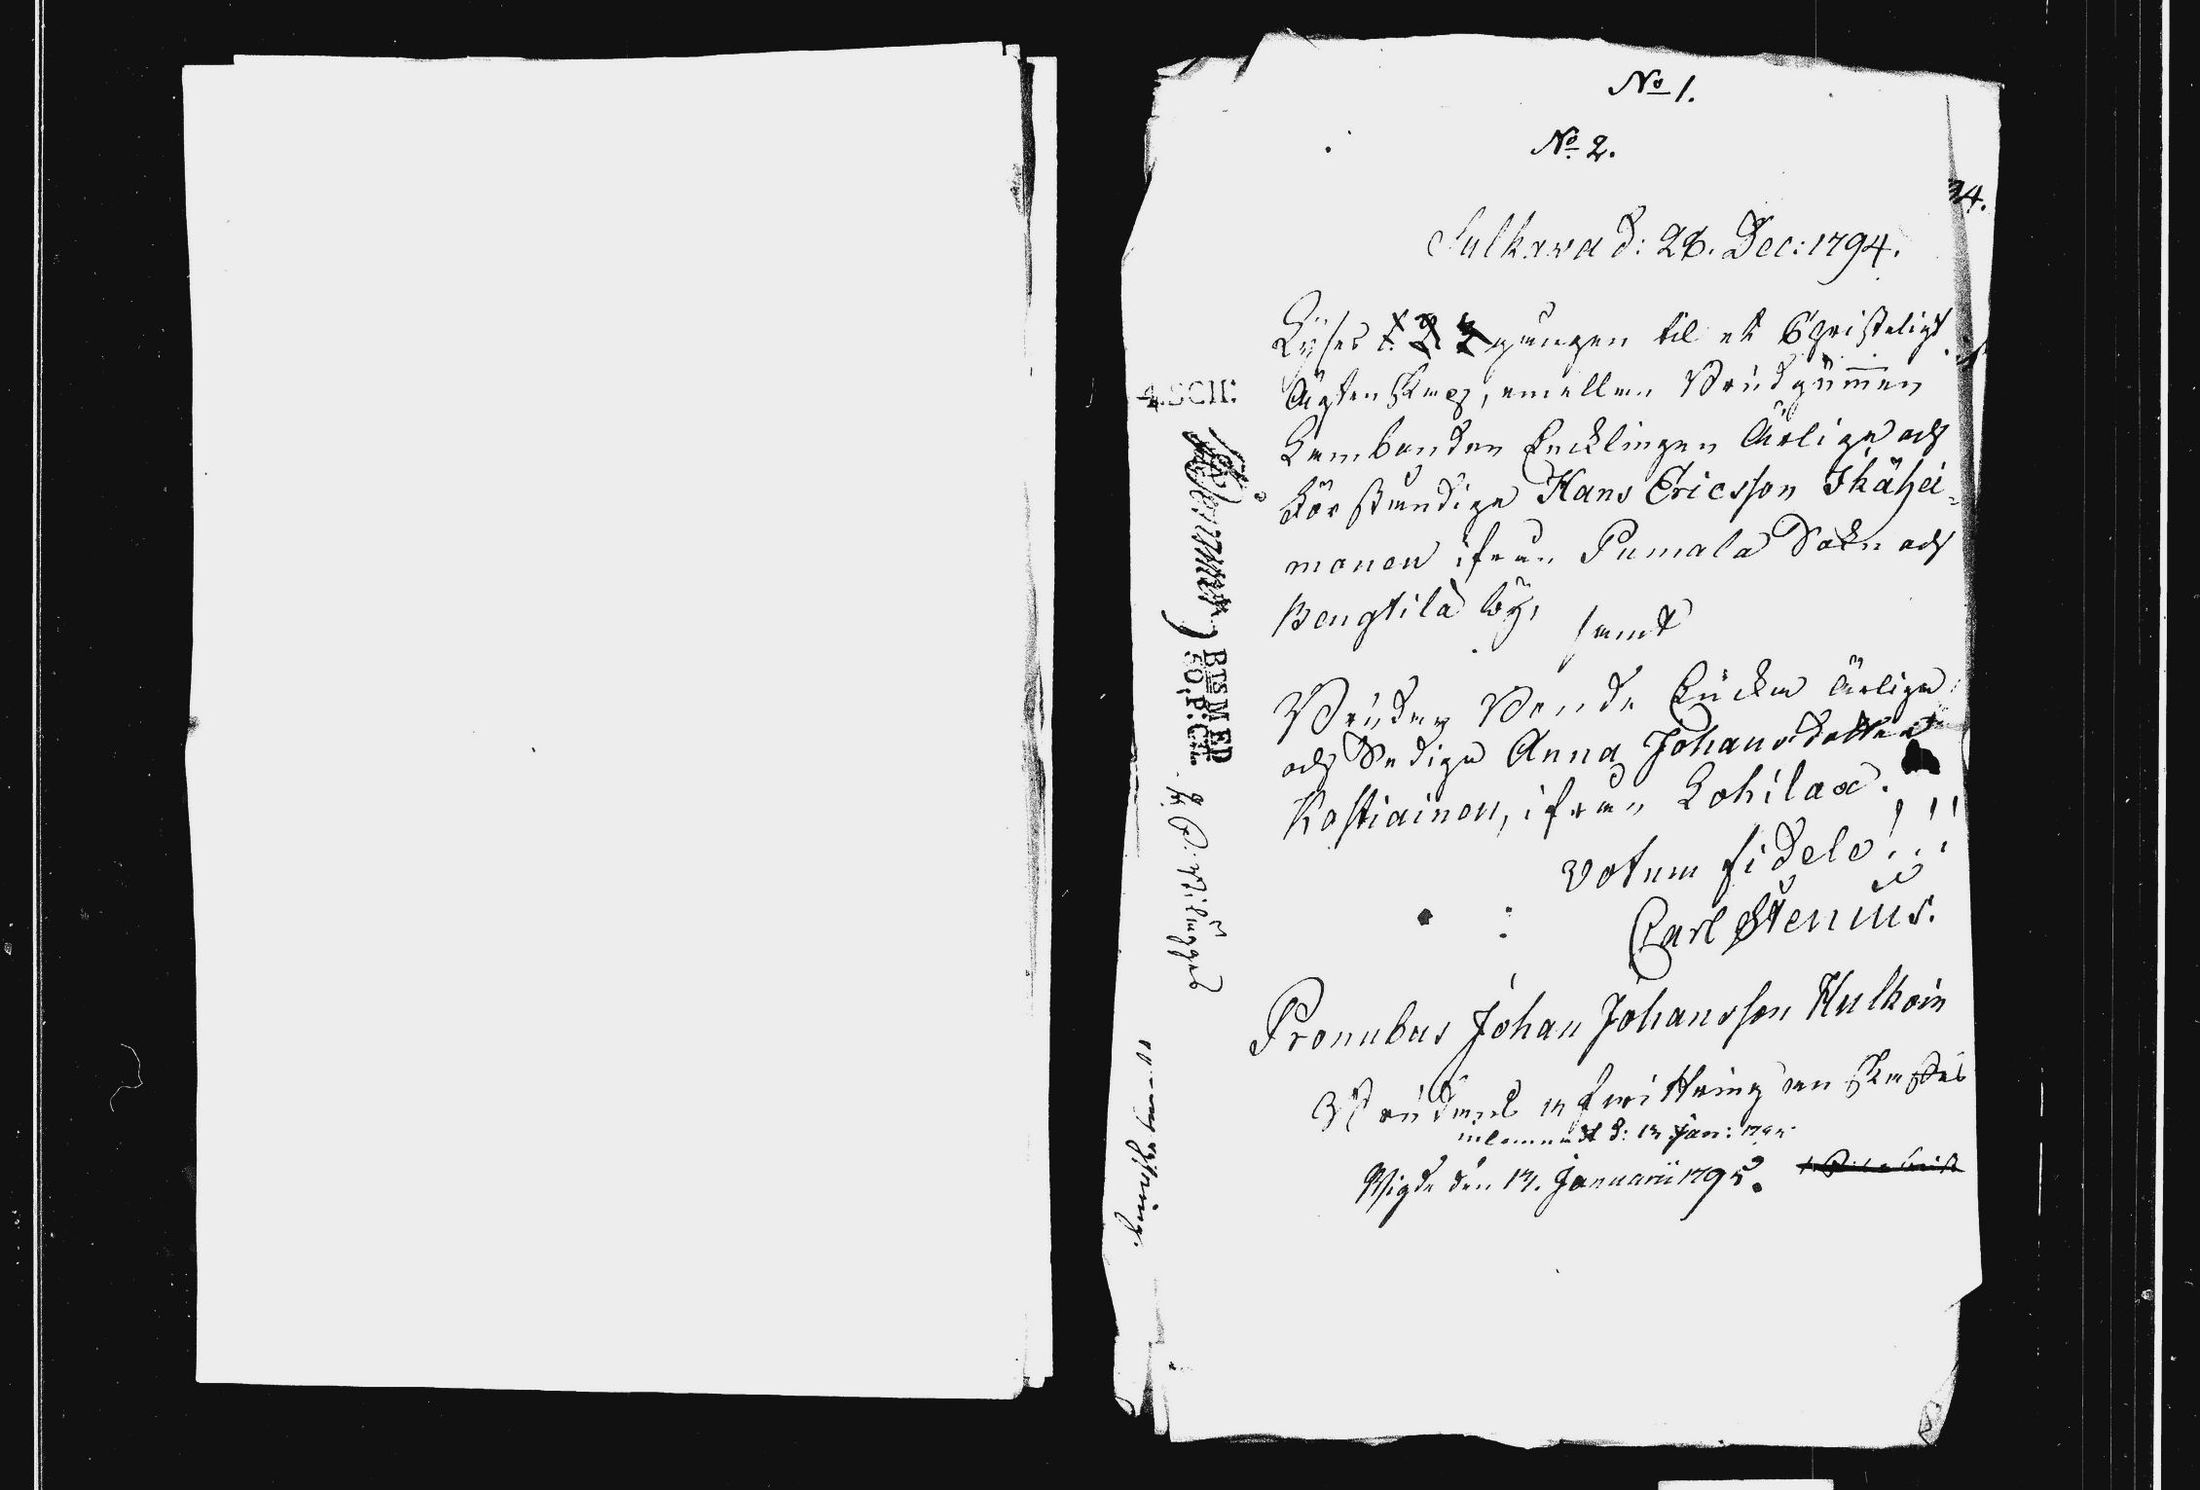 No 1.
No 2.
34.
Sulkava d: 28. Dec: 1794.
Lyses 1 2 3 gången til et Christeligt
Ägtenskap, emellan Brudgummen
Landbonden Enklingen Ärlige och
Förståndige Hans Ericsson Ikähei-
monen ifrån Pumala Sokn och
Bengtila by,
samt
Bruden Bonde Enckan ärliga
och Sediga Anna Johansdotter
Kostiainen, ifrån Lohilax.
Votum fidele!!!
Carl Stenius.
Pronubus Johan Johansson Hulkoin
Brudens afwittring
d: 13 Jan: 1795
Wigde den 13. Januarii 1795.
4.SCH:
BTS MED
50.P:CT.